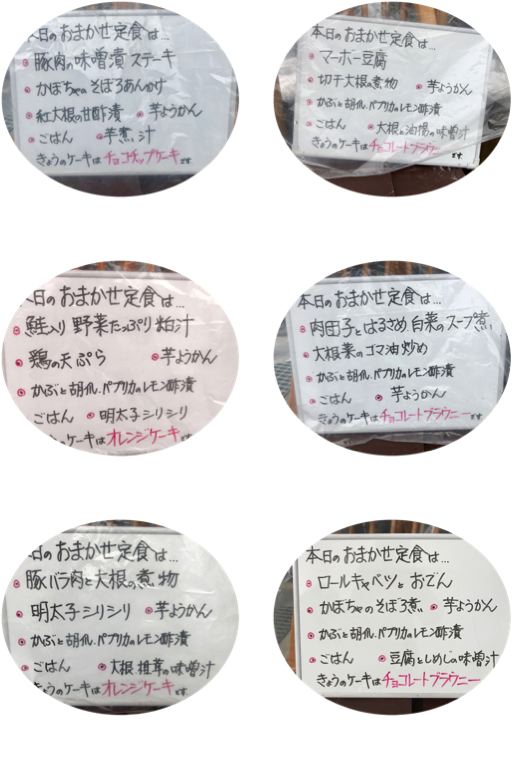 本日のおまかせ定食は...
豚肉の味噌漬ステーキ
かぼちゃのそぼろあんかけ
紅大根の甘酢漬 芋ようかん
ごはん 芋煮汁
きょうのケーキはチョコチップケーキです
本日のおまかせ定食は...
マーボー豆腐
切干大根煮物 芋ようかん
かぶと胡瓜、パプリカのレモン酢漬
ごはん 大根と油揚の味噌汁
きょうのケーキはチョコレートブラウニーです
本日のおまかせ定食は...
鮭入り 野菜たっぷり粕汁
鶏の天ぷら 芋ようかん
かぶと胡瓜、パプリカのレモン酢漬
ごはん 明太子シリシリ
のケーキはオレンジケーキです
本日のおまかせ定食は...
肉団子とはるさめ白菜のスープ煮
大根菜のゴマ油炒め
かぶと胡瓜、パプリカのレモン酢漬
ごはん 芋ようかん
きょうのケーキはチョコレートブラウニーです
本日のおまかせ定食は...
豚バラ肉と大根の煮物
明太子シリシリ 芋ようかん
かぶと胡瓜、パプリカのレモン酢漬
ごはん 大根、椎茸の味噌汁
きょうのケーキはオレンジケーキです
本日のおまかせ定食は...
ロールキャベツと おでん
かぼちゃのそぼろ煮 芋ようかん
かぶと胡瓜、パプリカのレモン酢漬
ごはん 豆腐としめじの味噌汁
きょうのケーキはチョコレートブラウニー